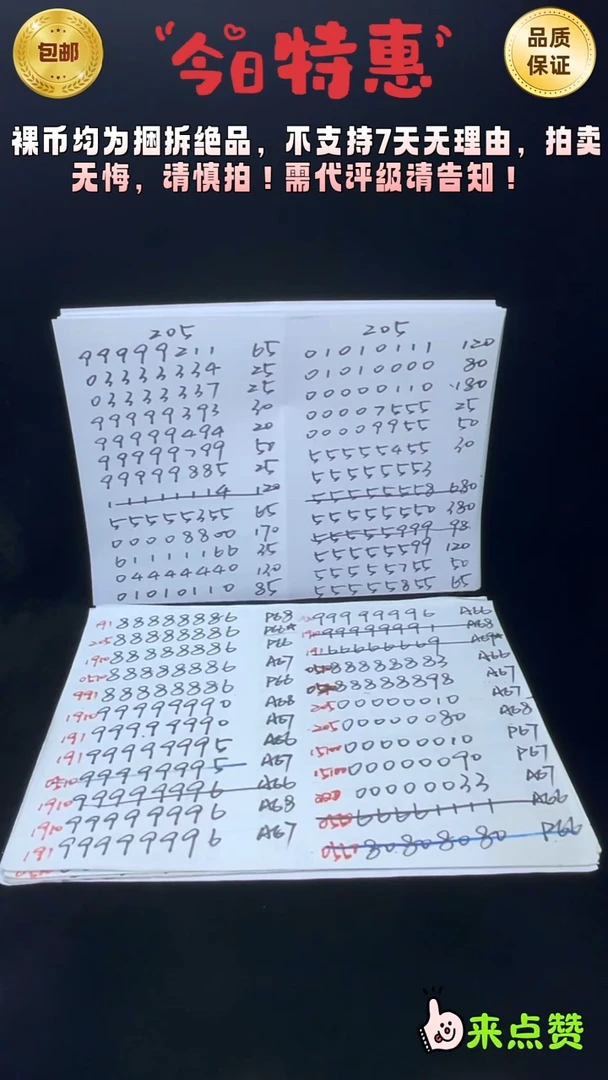 包邮
今日特惠
品质
保证
裸币均为捆拆绝品，不支持7天无理由，拍卖
无悔，请慎拍！需代评级请告知！
205
99999211 65
03333334 25
03333337 25
99999393 30
99999494 20
99999799 50
99999885 25
11111114 120
55555355 65
00008800 170
61111166 35
04444440 130
01010110 85
205
01010111 120
01010000 80
00000110 180
00007555 25
00009955 50
55555455 30
55555553
55555558 680
55555550 380
55555999 98
55555599 120
55555755 50
55555855 65
191 88888886 P68
205 88888886 P66*
1910 88888886 P66
0510 88888886 A67
991 88888886 P66
1910 99999990 A68
191 99999990 A67
191 99999995 A66
0510 99999995 A67
1910 99999996 A66
1910 99999996 A68
191 99999996 A67
99999996 A66
99999991 A68
191 66666669 A69*
0510 88888883 A66
88888898 A67
205 00000010 A67
205 00000080 A68
1510 00000010 P67
1510 00000090 P67
00000033 A67
66661111 A66
0510 80808080 P66
来点赞